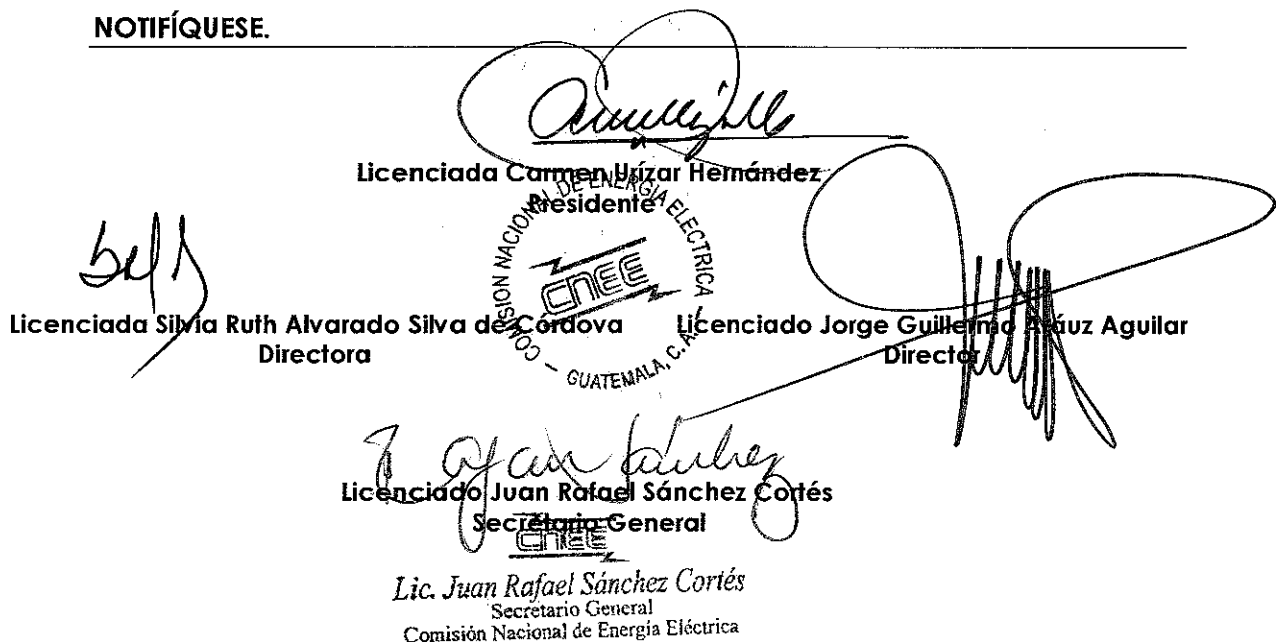 NOTIFÍQUESE.
Licenciada Carmen Urízar Hernández
Presidente
COMISION NACIONAL DE ENERGIA ELECTRICA
CNEE
GUATEMALA, C. A.
Licenciada Silvia Ruth Alvarado Silva de Córdova
Directora
Licenciado Jorge Guillermo Aráuz Aguilar
Director
Licenciado Juan Rafael Sánchez Cortés
Secretario General
CNEE
Lic. Juan Rafael Sánchez Cortés
Secretario General
Comisión Nacional de Energía Eléctrica